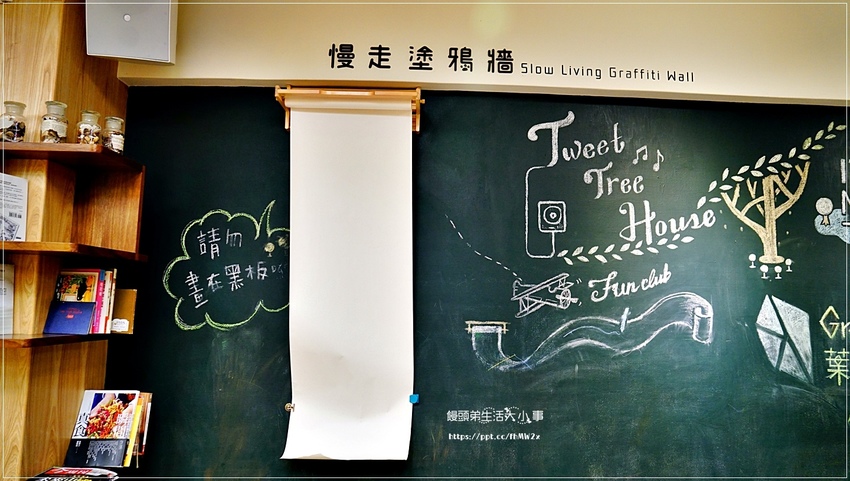 慢走塗鴉牆 Slow Living Graffiti Wall
Tweet
Tree
House
請勿
畫在黑板
Fun club
Gr
葉
真食
饅頭弟生活大小事
https://ppt.cc/fhMW2x